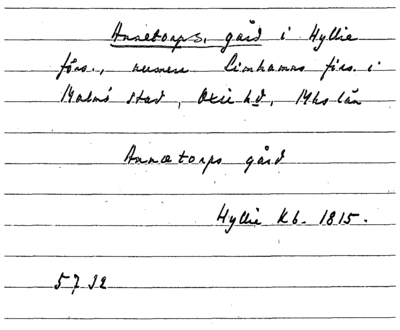 Annetorps, gård i Hyllie
förs., numera Limhamns förs. i
Malmö stad, Oxie hd, Mhs län
Annetorps gård
Hyllie Kb. 1815.
5732